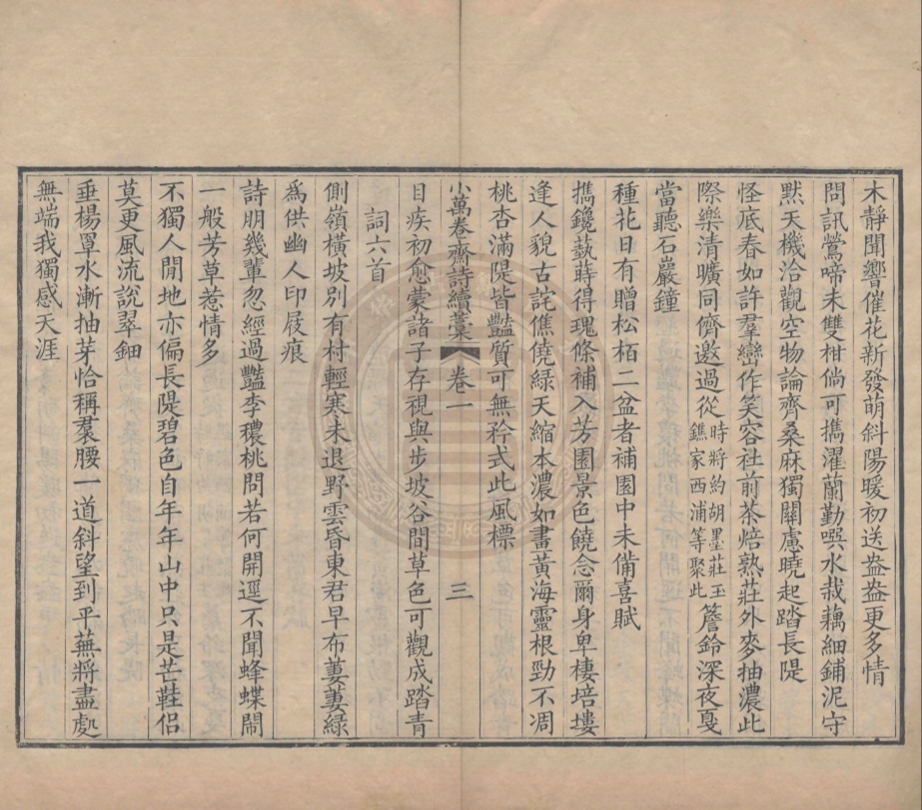 木靜聞響催花新發萌斜陽暖初送盎盎更多情
問訊鶯啼未雙柑倘可攜濯蘭勤噀水栽藕細鋪泥守
默天機洽觀空物論齊桑麻獨關慮曉起踏長隄
怪底春如許羣巒作笑容社前茶焙熟莊外麥抽濃此
際樂清曠同儕邀過從時將約胡墨莊玉鐎家西浦等聚此簷鈴深夜戛
當聽石巖鐘
種花日有贈松栢二盆者補園中未備喜賦
攜鑱蓺蒔得瑰條補入芳園景色饒念爾身卑棲培塿
逢人貌古詫僬僥綠天縮本濃如畫黃海靈根勁不凋
桃杏滿隄皆豔質可無矜式此風標
小萬卷齋詩續藁 卷一 三
目疾初愈蒙諸子存視與步坡谷間草色可觀成踏青
詞六首
側嶺橫坡別有村輕寒未退野雲昏東君早布萋萋綠
爲供幽人印屐痕
詩朋幾輩忽經過豔李穠桃問若何開逕不聞蜂蝶鬧
一般芳草惹情多
不獨人閒地亦偏長隄碧色自年年山中只是芒鞋侣
莫更風流說翠鈿
垂楊罩水漸抽芽恰稱裠腰一道斜望到平蕪將盡處
無端我獨感天涯